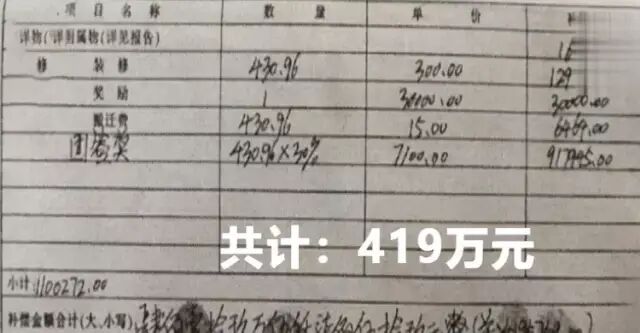 项目名称 数量 单价
详物(详附属物(详见报告) 16
修 装修 430.96 300.00 129
奖励 1 30000.00 30000.00
搬迁费 430.96 15.00 6469.00
团签奖 430.96×30% 7100.00 917945.00
共计：419万元
小计：1100272.00
补偿金额合计(大、小写)